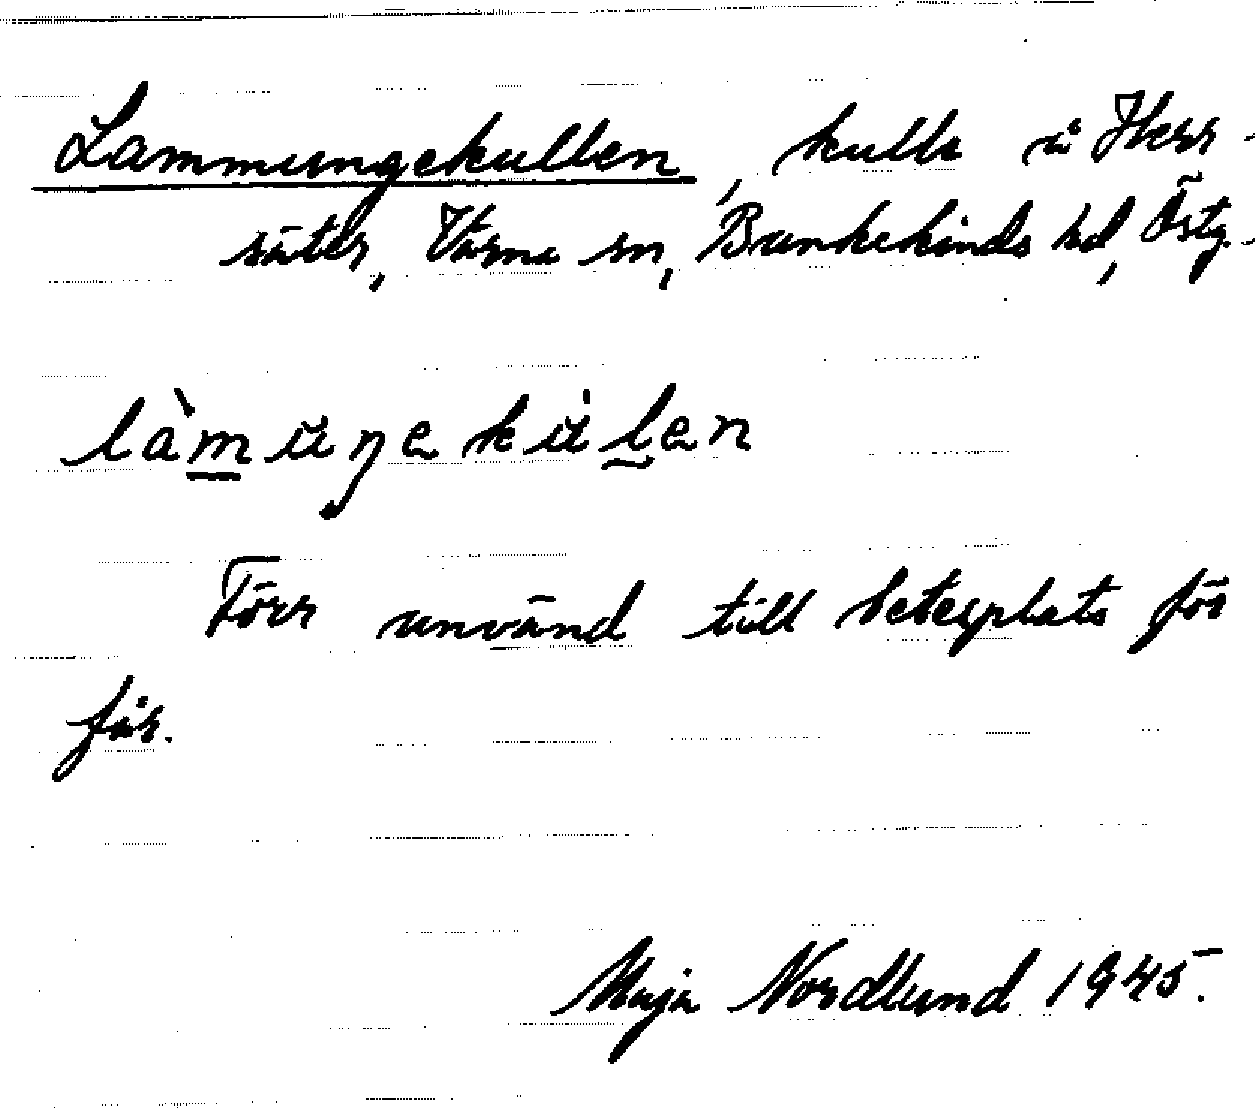 Lammungekullen, kulle å Herr-
säter, Värna sn, Bankekinds hd, Östg.
làmuŋekulen
Förr använd till betesplats för
får.
Maja Nordlund 1945.